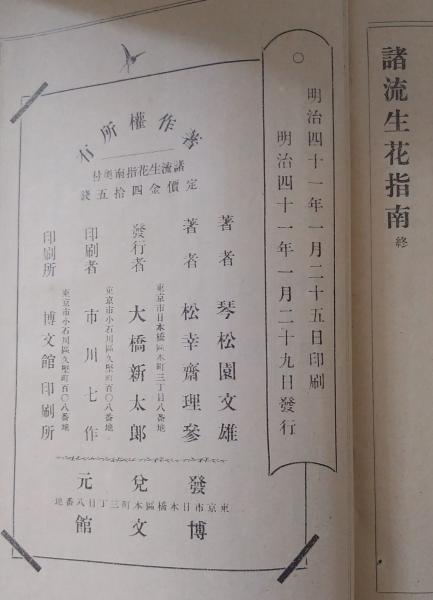 諸流生花指南 終
明治四十一年一月二十五日印刷
明治四十一年一月二十九日發行
著作權所有
諸流生花指南奥付
定價金四拾五錢
著者 琴松園文雄
著者 松幸齋理參
東京市日本橋區本町三丁目八番地
發行者 大橋新太郎
東京市小石川區久堅町百〇八番地
印刷者 市川七作
東京市小石川區久堅町百〇八番地
印刷所 博文館印刷所
發兌元
東京市日本橋區本町三丁目八番地
博文館